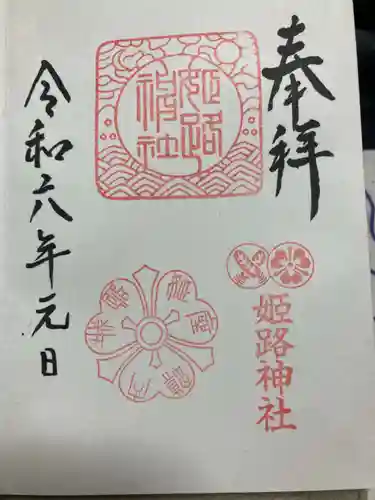 奉拝
姫路神社
姫路神社
令和六年元日